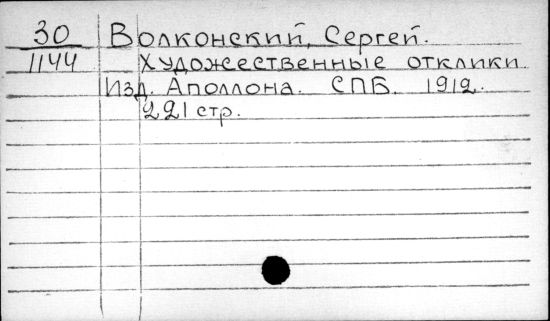 30 Волконский, Сергей.
1144 Художественные отклики.
Изд. Аполлона. СПБ. 1912.
221 стр.